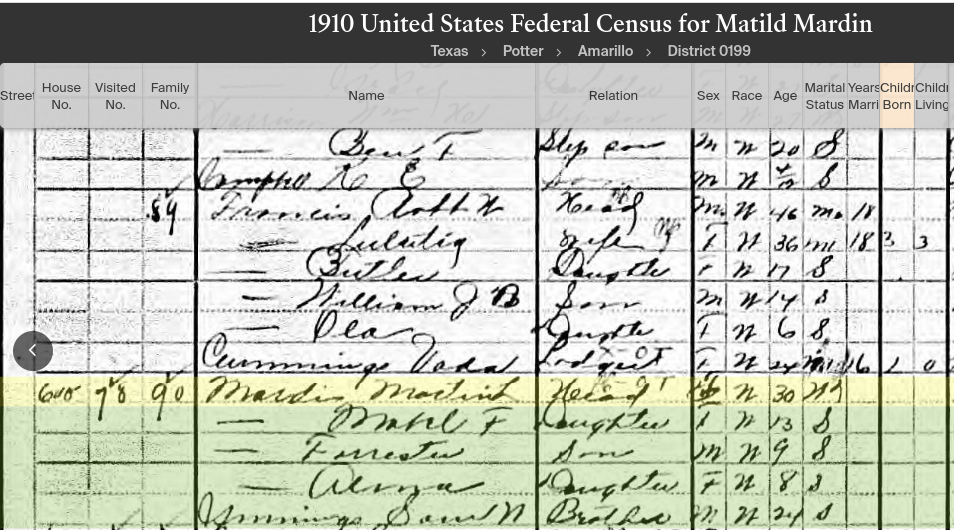 1910 United States Federal Census for Matild Mardin
Texas > Potter > Amarillo > District 0199
Street House No. Visited No. Family No. Name Relation Sex Race Age Marital Status Years Marri Childr Born Childr Living
— Ben F Step son M W 20 S
Son M W S
89 Francis Robt Head M W 46 M 18
wife F W 36 M 18 3 3
— Butler Daughter F W 17 S
— William J B Son M W 14 S
— Ola Daughter F W 6 S
Cummings Vada Lodger F W 24 16 1 0
600 78 90 Mardis Head W 30
— Mabel F Daughter F W 13 S
— Forrester Son M W 9 S
— Alma Daughter F W 8 S
Brother M W 24 S